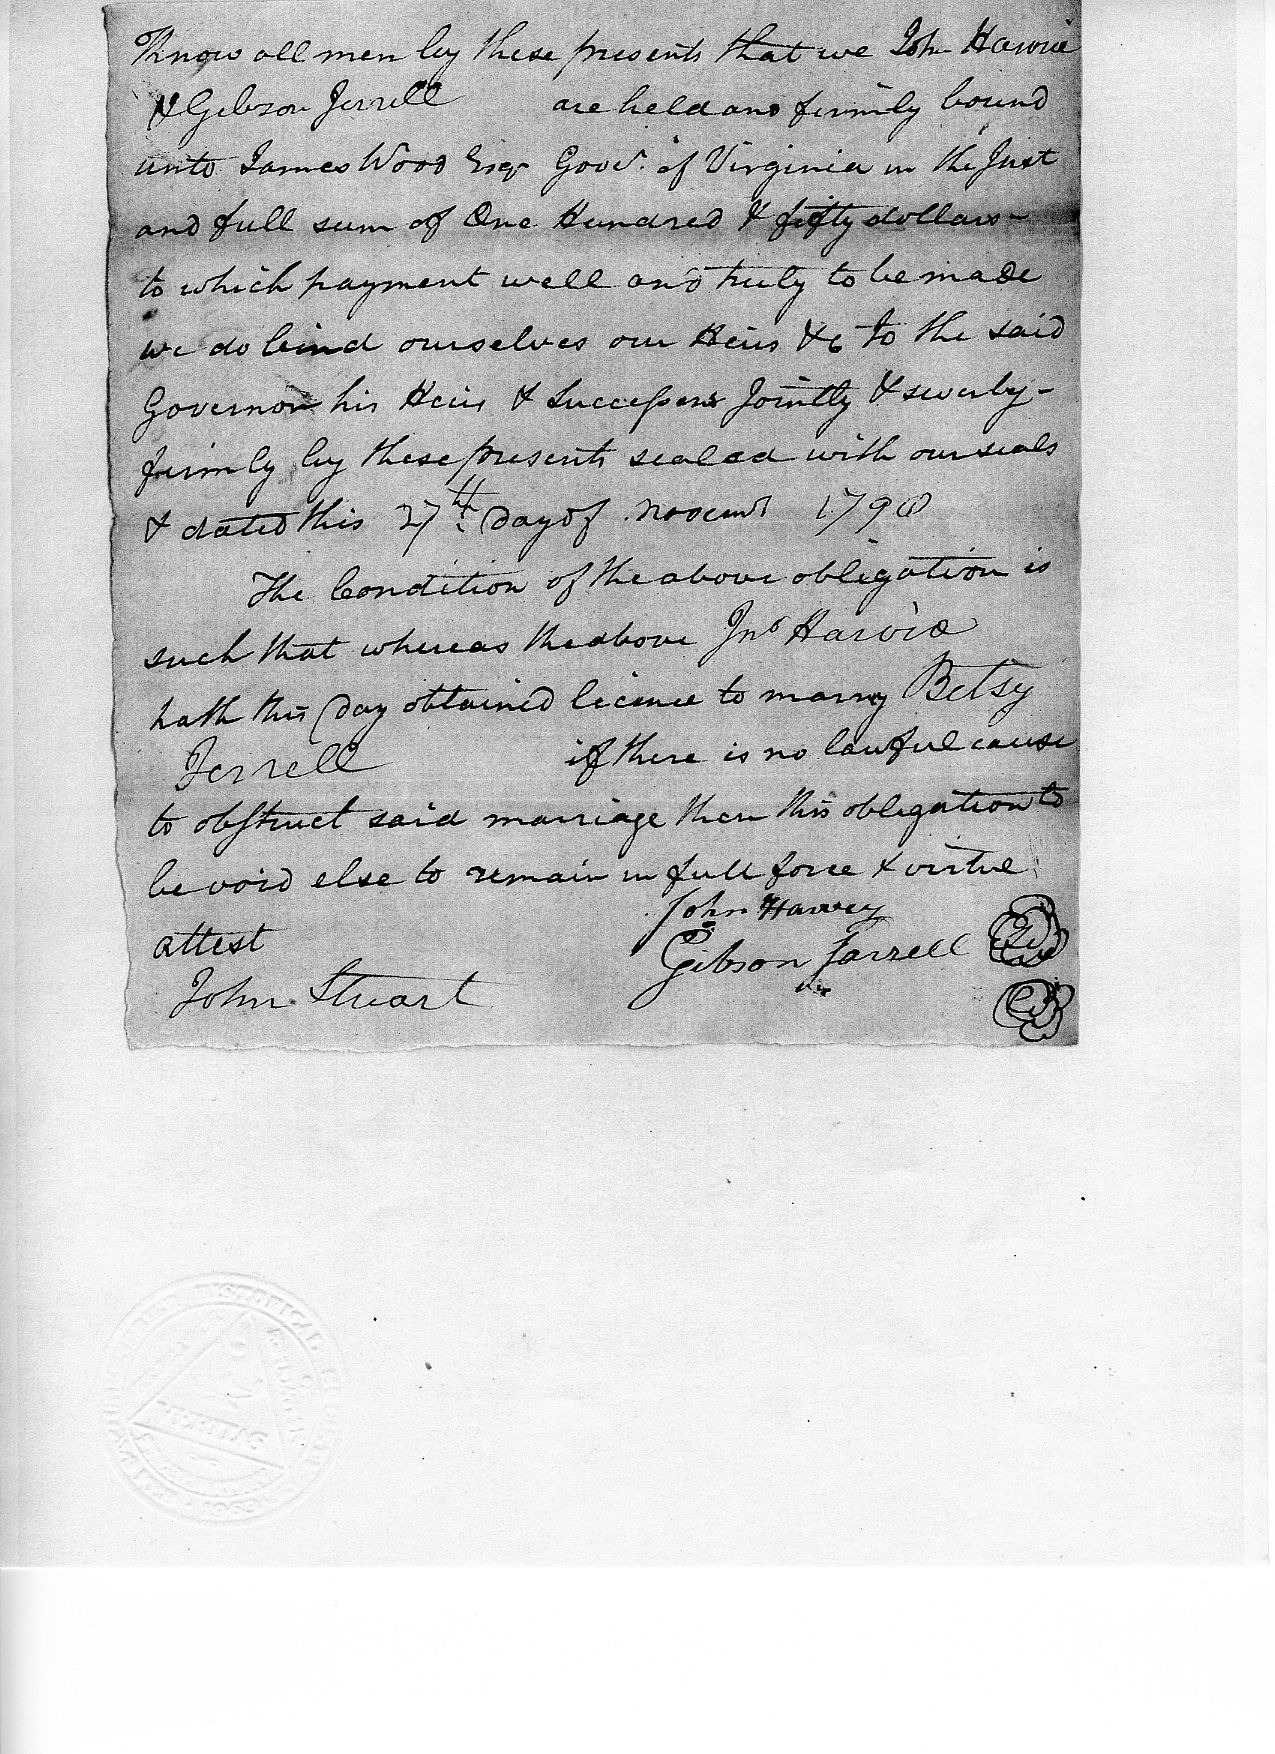 Know all men by these presents that we John Harvie
& Gibson Jerrell are held and firmly bound
unto James Wood Esqr Govr. of Virginia in the Just
and full sum of One Hundred & fifty dollars -
to which payment well and truly to be made
we do bind ourselves our Heirs &c to the said
Governor his Heirs & Successors Jointly & sever ly -
firmly by these presents sealed with our seals
& dated this 27th day of Novemr 1798
The Condition of the above obligation is
such that whereas the above Jno Harvie
hath this day obtained licence to marry Betsy
Jerrell if there is no lawful cause
to obstruct said marriage then this obligation to
be void else to remain in full force & virtue
John Harvey
attest
Gibson Jarrell
John Stuart
HISTORICAL
VERITAS
1963